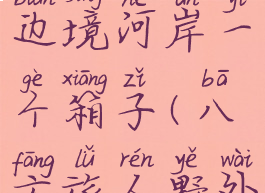 边境河岸一
gè xiāng zǐ bā
个箱子(八
fāng lǚ rén yě wài
方旅人野外